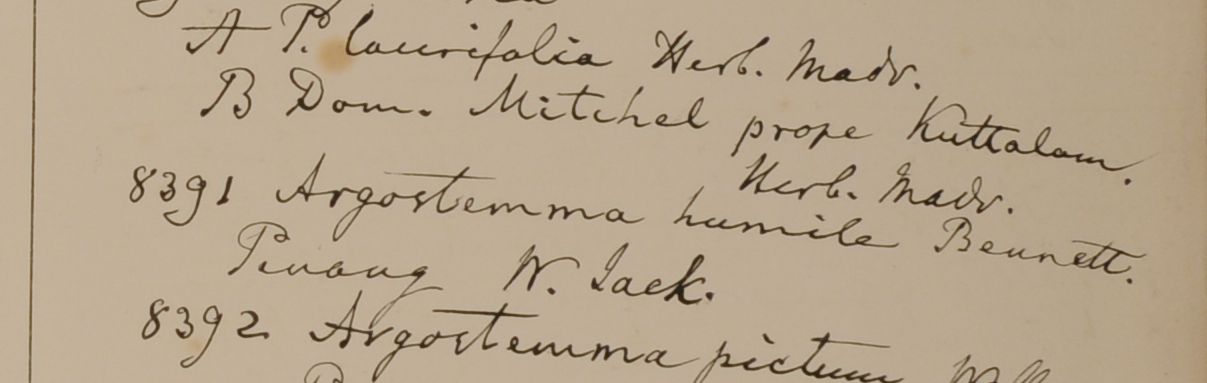 A P. laurifolia Herb. Madr.
B Dom. Mitchel prope Kuttalam.
Herb. Madr.
8391 Argostemma humile Bennett.
Pinang W. Jack.
8392 Argostemma pictum